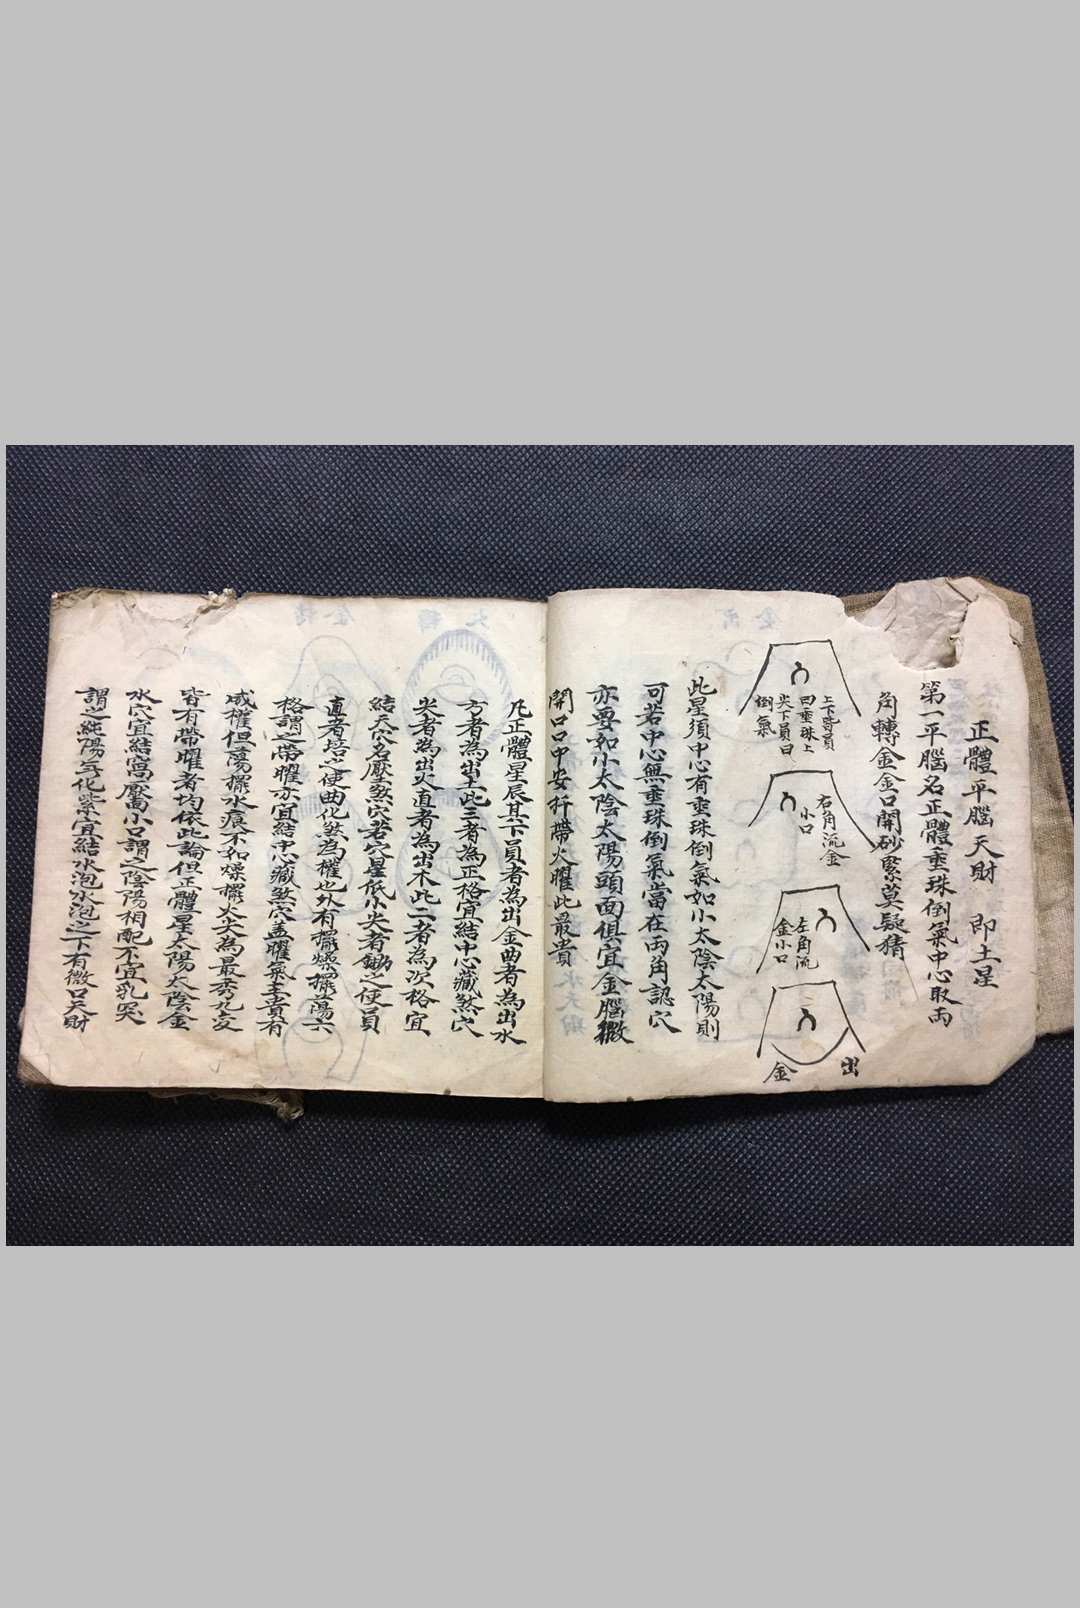 正體平腦天財　即土星
第一平腦名正體垂珠倒氣中心取兩
角轉金金口開砂緊莫疑猜
上下皆員
曰垂珠上
尖下員曰
倒氣
右角流金
小口
左角流
金小口
出
金
此星須中心有垂珠倒氣如小太陰太陽則
可若中心無垂珠倒氣當在兩角認穴
亦要如小太陰太陽頭面俱宜金腦微
開口口中安扦帶火曜此最貴
凡正體星辰其下員者為出金曲者為出水
方者為出土此三者為正格宜結中心藏煞穴
尖者為出火直者為出木此二者為次格宜
結天穴名壓煞穴若穴星低小尖者鋤之使員
直者培之使曲化煞為權也外有擺燥擺蕩六
格謂之帶曜亦宜結中心藏煞穴盖曜氣主貴有
威權但蕩擺水痕不如燥擺火尖為最秀九变
皆有帶曜者均依此論但正體星太陽太陰金
水穴宜結窩壓小口謂之陰陽相配不宜乳突
謂之純陽無化紫宜結水泡水泡之下有微口天財